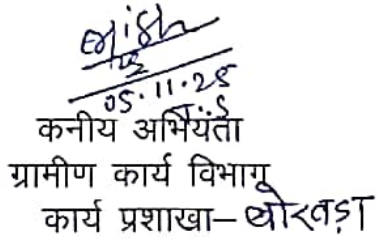 05.11.25
कनीय अभियंता
ग्रामीण कार्य विभाग
कार्य प्रशाखा-